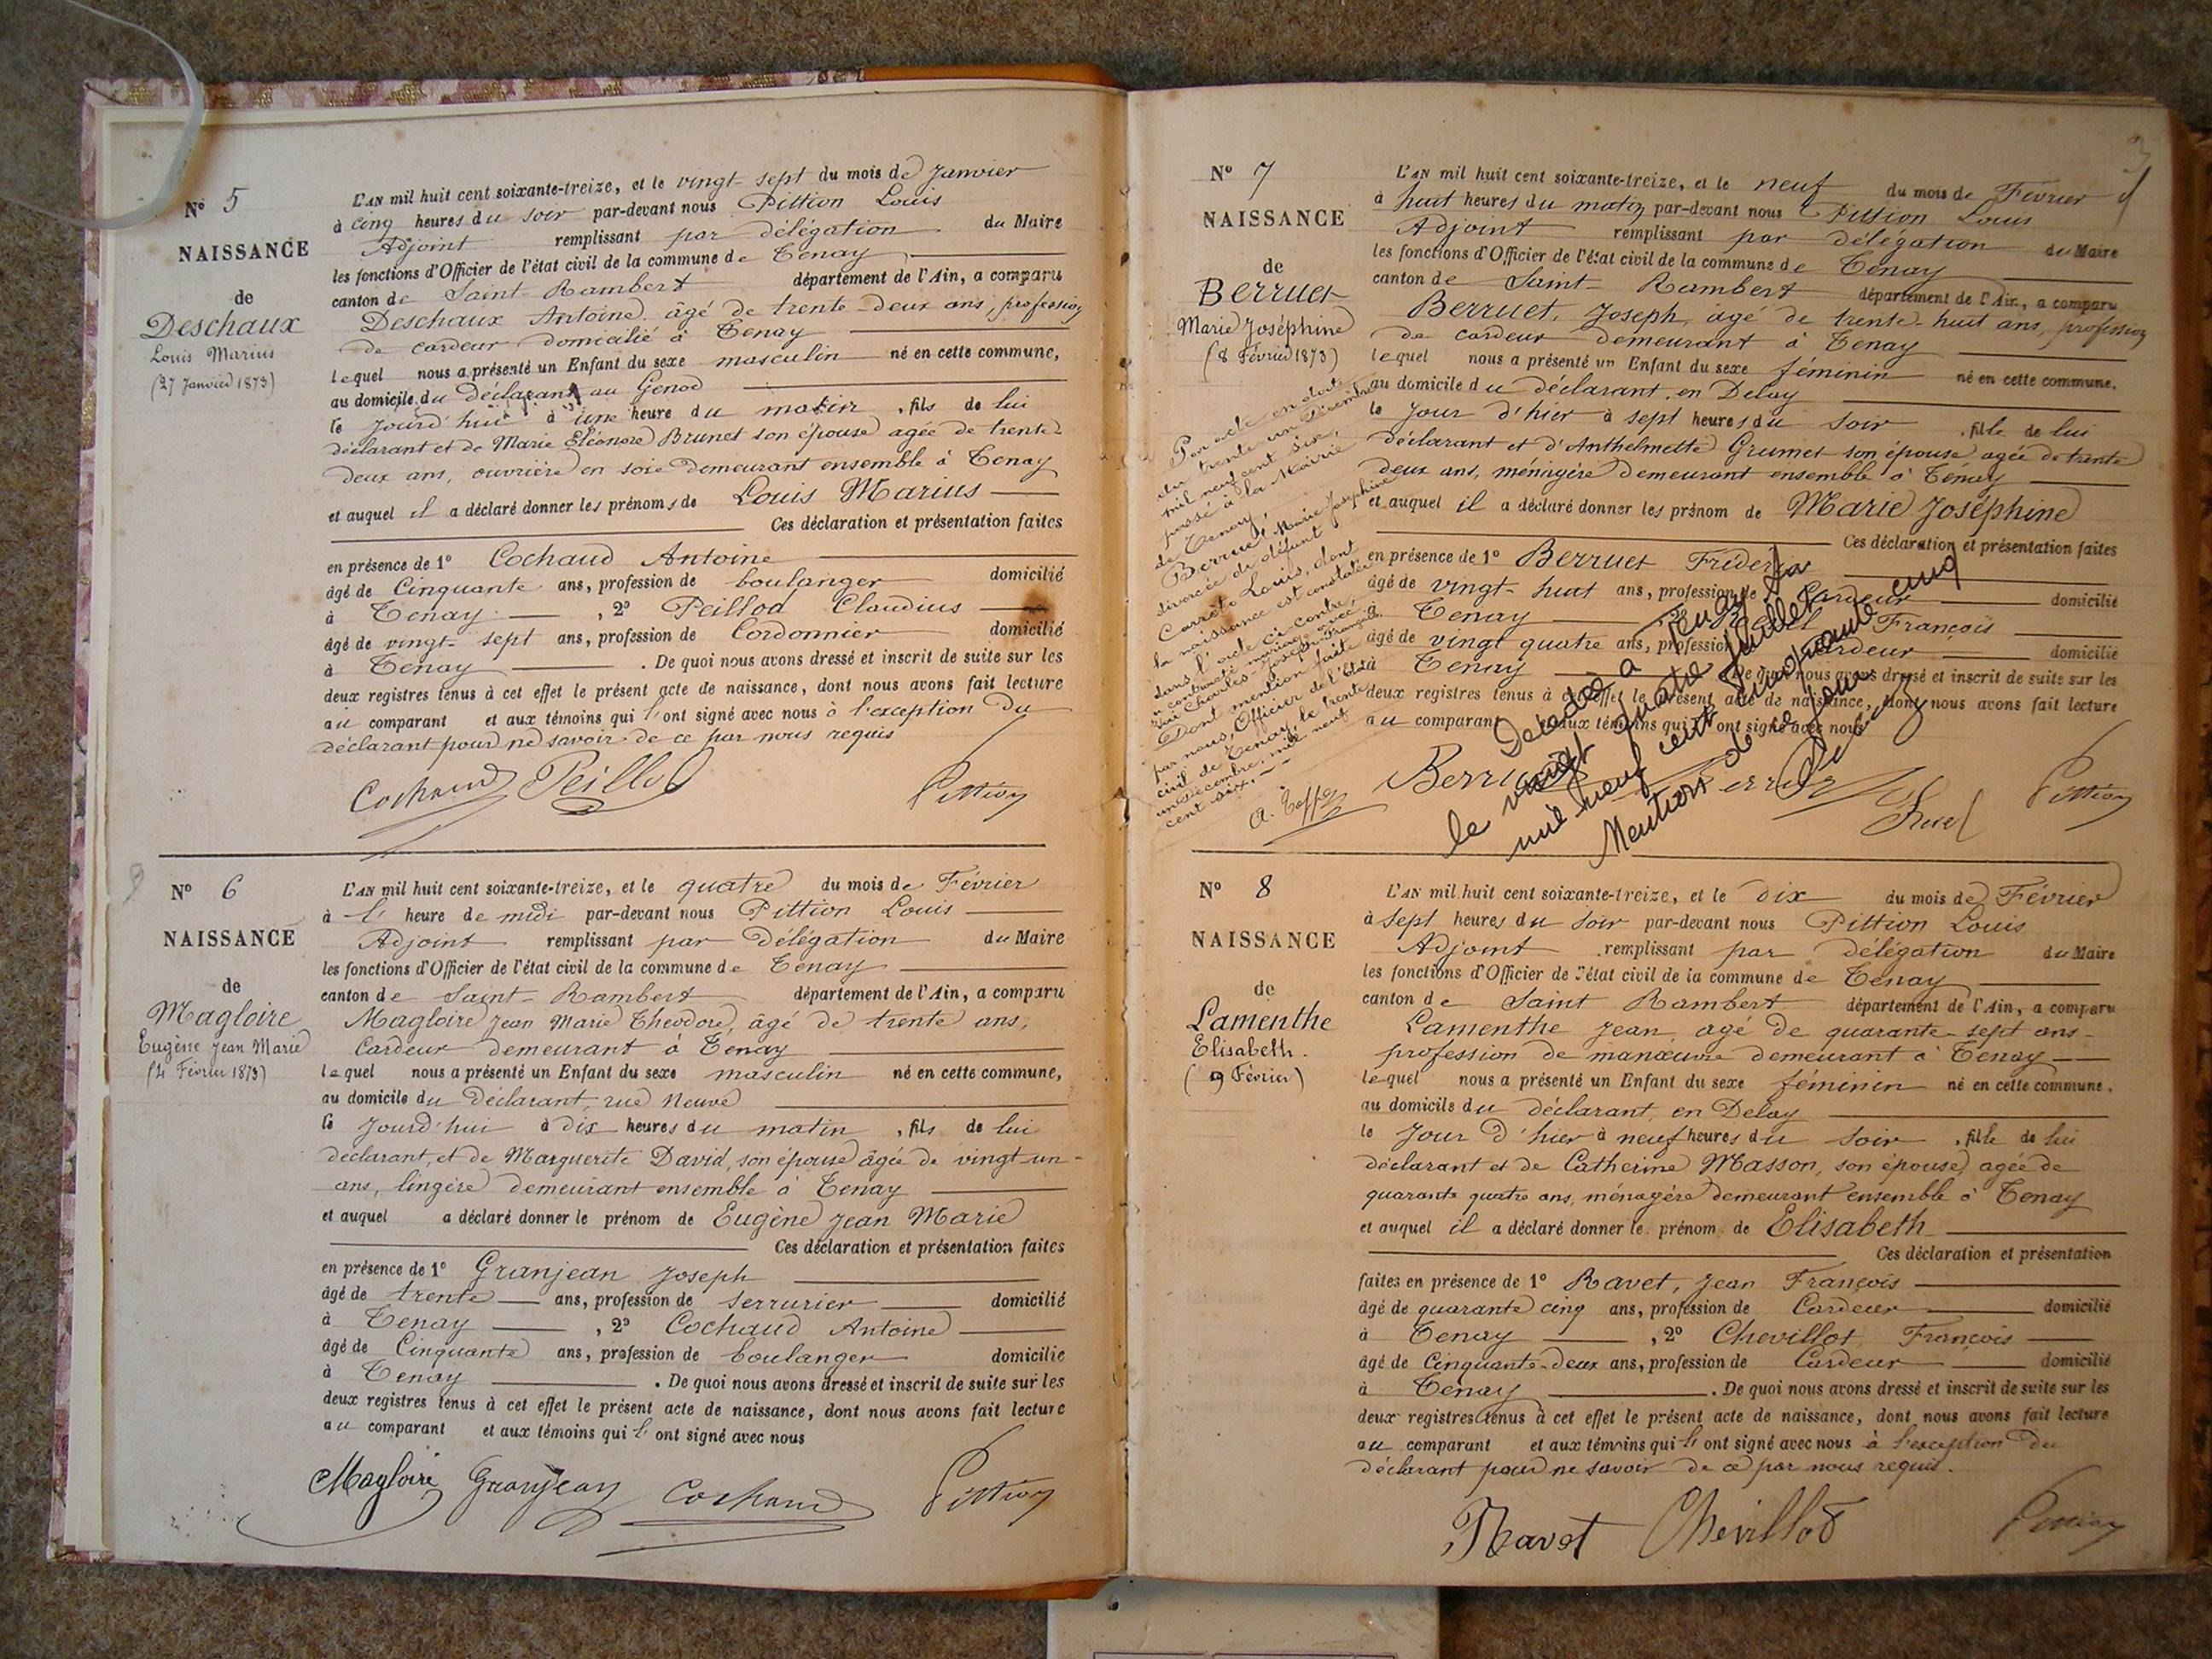 Nº 5
NAISSANCE
de
Deschaux
Louis Marius
(27 Janvier 1873)
L'AN mil huit cent soixante-treize, et le vingt-sept du mois de Janvier
à Cinq heures du soir par-devant nous Pittion Louis
Adjoint remplissant par délégation du Maire
les fonctions d'Officier de l'état civil de la commune de Tenay
canton de Saint-Rambert département de l'Ain, a comparu
Deschaux Antoine, âgé de trente-deux ans, profession
de cardeur domicilié à Tenay
lequel nous a présenté un Enfant du sexe masculin né en cette commune,
au domicile du déclarant au Genod
le jourd'hui à une heure du matin, fils de lui
déclarant et de Marie Eléonore Brunet son épouse agée de trente-
deux ans, ouvrière en soie demeurant ensemble à Tenay
et auquel il a déclaré donner les prénoms de Louis Marius
Ces déclaration et présentation faites
en présence de 1º Cochaud Antoine
âgé de Cinquante ans, profession de boulanger domicilié
à Tenay, 2º Peillod Claudius
âgé de vingt-sept ans, profession de Cordonnier domicilié
à Tenay. De quoi nous avons dressé et inscrit de suite sur les
deux registres tenus à cet effet le présent acte de naissance, dont nous avons fait lecture
au comparant et aux témoins qui l'ont signé avec nous à l'exception du
déclarant pour ne savoir de ce par nous requis
Cochaud Peillod Pittion
Nº 6
NAISSANCE
de
Magloire
Eugène Jean Marie
(4 Février 1873)
L'AN mil huit cent soixante-treize, et le quatre du mois de Février
à l' heure de midi par-devant nous Pittion Louis
Adjoint remplissant par délégation du Maire
les fonctions d'Officier de l'état civil de la commune de Tenay
canton de Saint-Rambert département de l'Ain, a comparu
Magloire Jean Marie Théodore, âgé de trente ans,
Cardeur demeurant à Tenay
lequel nous a présenté un Enfant du sexe masculin né en cette commune,
au domicile du déclarant, rue Neuve
le jourd'hui à dix heures du matin, fils de lui
déclarant, et de Marguerite David, son épouse âgée de vingt-un-
ans, lingère demeurant ensemble à Tenay
et auquel a déclaré donner le prénom de Eugène Jean Marie
Ces déclaration et présentation faites
en présence de 1º Granjean Joseph
âgé de trente ans, profession de serrurier domicilié
à Tenay, 2º Cochaud Antoine
âgé de Cinquante ans, profession de boulanger domicilié
à Tenay. De quoi nous avons dressé et inscrit de suite sur les
deux registres tenus à cet effet le présent acte de naissance, dont nous avons fait lecture
au comparant et aux témoins qui l'ont signé avec nous
Magloire Granjean Cochaud Pittion
Nº 7
NAISSANCE
de
Berruet
Marie Joséphine
(8 Février 1873)
Par acte en date
du trente un Décembre
mil neuf cent six,
passé à la Mairie
de Tenay,
Berruet Marie Joséphine
divorcée de défunt
Carrét Louis, dont
la naissance est constatée
dans l'acte ci-contre,
a contracté mariage avec
Charles-Joseph-François.
Dont mention faite
par nous, Officier de l'Etat
civil de Tenay, le trente
un Décembre, mil neuf
cent six.
L'AN mil huit cent soixante-treize, et le neuf du mois de Février
à huit heures du matin par-devant nous Pittion Louis
Adjoint remplissant par délégation du Maire
les fonctions d'Officier de l'état civil de la commune de Tenay
canton de Saint-Rambert département de l'Ain, a comparu
Berruet, Joseph, agé de trente-huit ans, profession
de cardeur demeurant à Tenay
lequel nous a présenté un Enfant du sexe féminin né en cette commune,
au domicile du déclarant, en Delay
le jour d'hier à sept heures du soir, fille de lui
déclarant et d'Anthelmette Grumet son épouse agée de trente
deux ans, ménagère demeurant ensemble à Tenay
et auquel il a déclaré donner les prénom de Marie Joséphine
Ces déclaration et présentation faites
en présence de 1º Berruet Fréderic
âgé de vingt-huit ans, profession de Cardeur domicilié
à Tenay François
âgé de vingt quatre ans, profession Cardeur domicilié
à Tenay De quoi nous avons dressé et inscrit de suite sur les
deux registres tenus à cet effet le présent acte de naissance, dont nous avons fait lecture
au comparant et aux témoins qui l'ont signé avec nous
Décédée à Tenay
le vingt quatre Juillet
mil neuf cent cinquante cinq
Mention de ce jour
Berruet Berruet Pittion
Nº 8
NAISSANCE
de
Lamenthe
Elisabeth.
(9 Février)
L'AN mil huit cent soixante-treize, et le dix du mois de Février
à sept heures du soir par-devant nous Pittion Louis
Adjoint remplissant par délégation du Maire
les fonctions d'Officier de l'état civil de la commune de Tenay
canton de Saint Rambert département de l'Ain, a comparu
Lamenthe Jean, agé de quarante-sept ans
profession de manœuvre demeurant à Tenay
lequel nous a présenté un Enfant du sexe féminin né en cette commune,
au domicile du déclarant, en Delay
le jour d'hier à neuf heures du soir, fille de lui
déclarant et de Catherine Masson, son épouse, agée de
quarante quatre ans, ménagère demeurant ensemble à Tenay
et auquel il a déclaré donner le prénom de Elisabeth
Ces déclaration et présentation
faites en présence de 1º Ravet, Jean François
âgé de quarante cinq ans, profession de Cardeur domicilié
à Tenay, 2º Chevillot François
âgé de Cinquante-deux ans, profession de Cardeur domicilié
à Tenay. De quoi nous avons dressé et inscrit de suite sur les
deux registres tenus à cet effet le présent acte de naissance, dont nous avons fait lecture
au comparant et aux témoins qui l'ont signé avec nous à l'exception du
déclarant pour ne savoir de ce par nous requis.
Ravet Chevillot Pittion